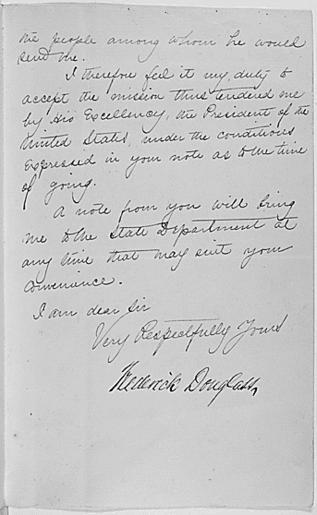 the people among whom he would
send me.
I therefore feel it my duty to
accept the mission thus tendered me
by His Excellency, the President of the
United States, under the conditions
expressed in your note as to the time
of going.
A note from you will bring
me to the State Department at
any time that may suit your
convenience.
I am dear Sir
Very Respectfully Yours
Frederick Douglass,